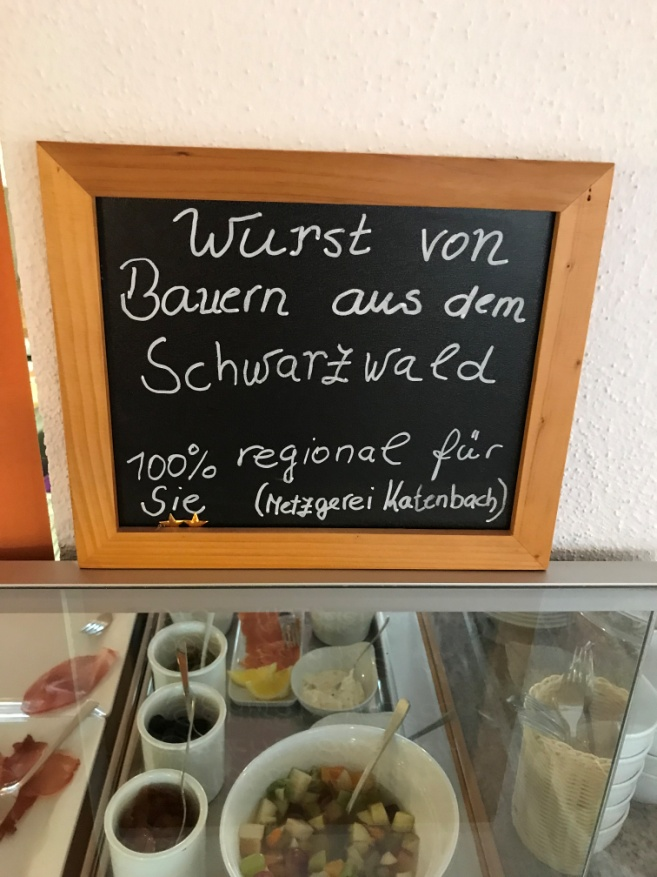 Wurst von
Bauern aus dem
Schwarzwald
100% regional für
Sie (Metzgerei Katenbach)